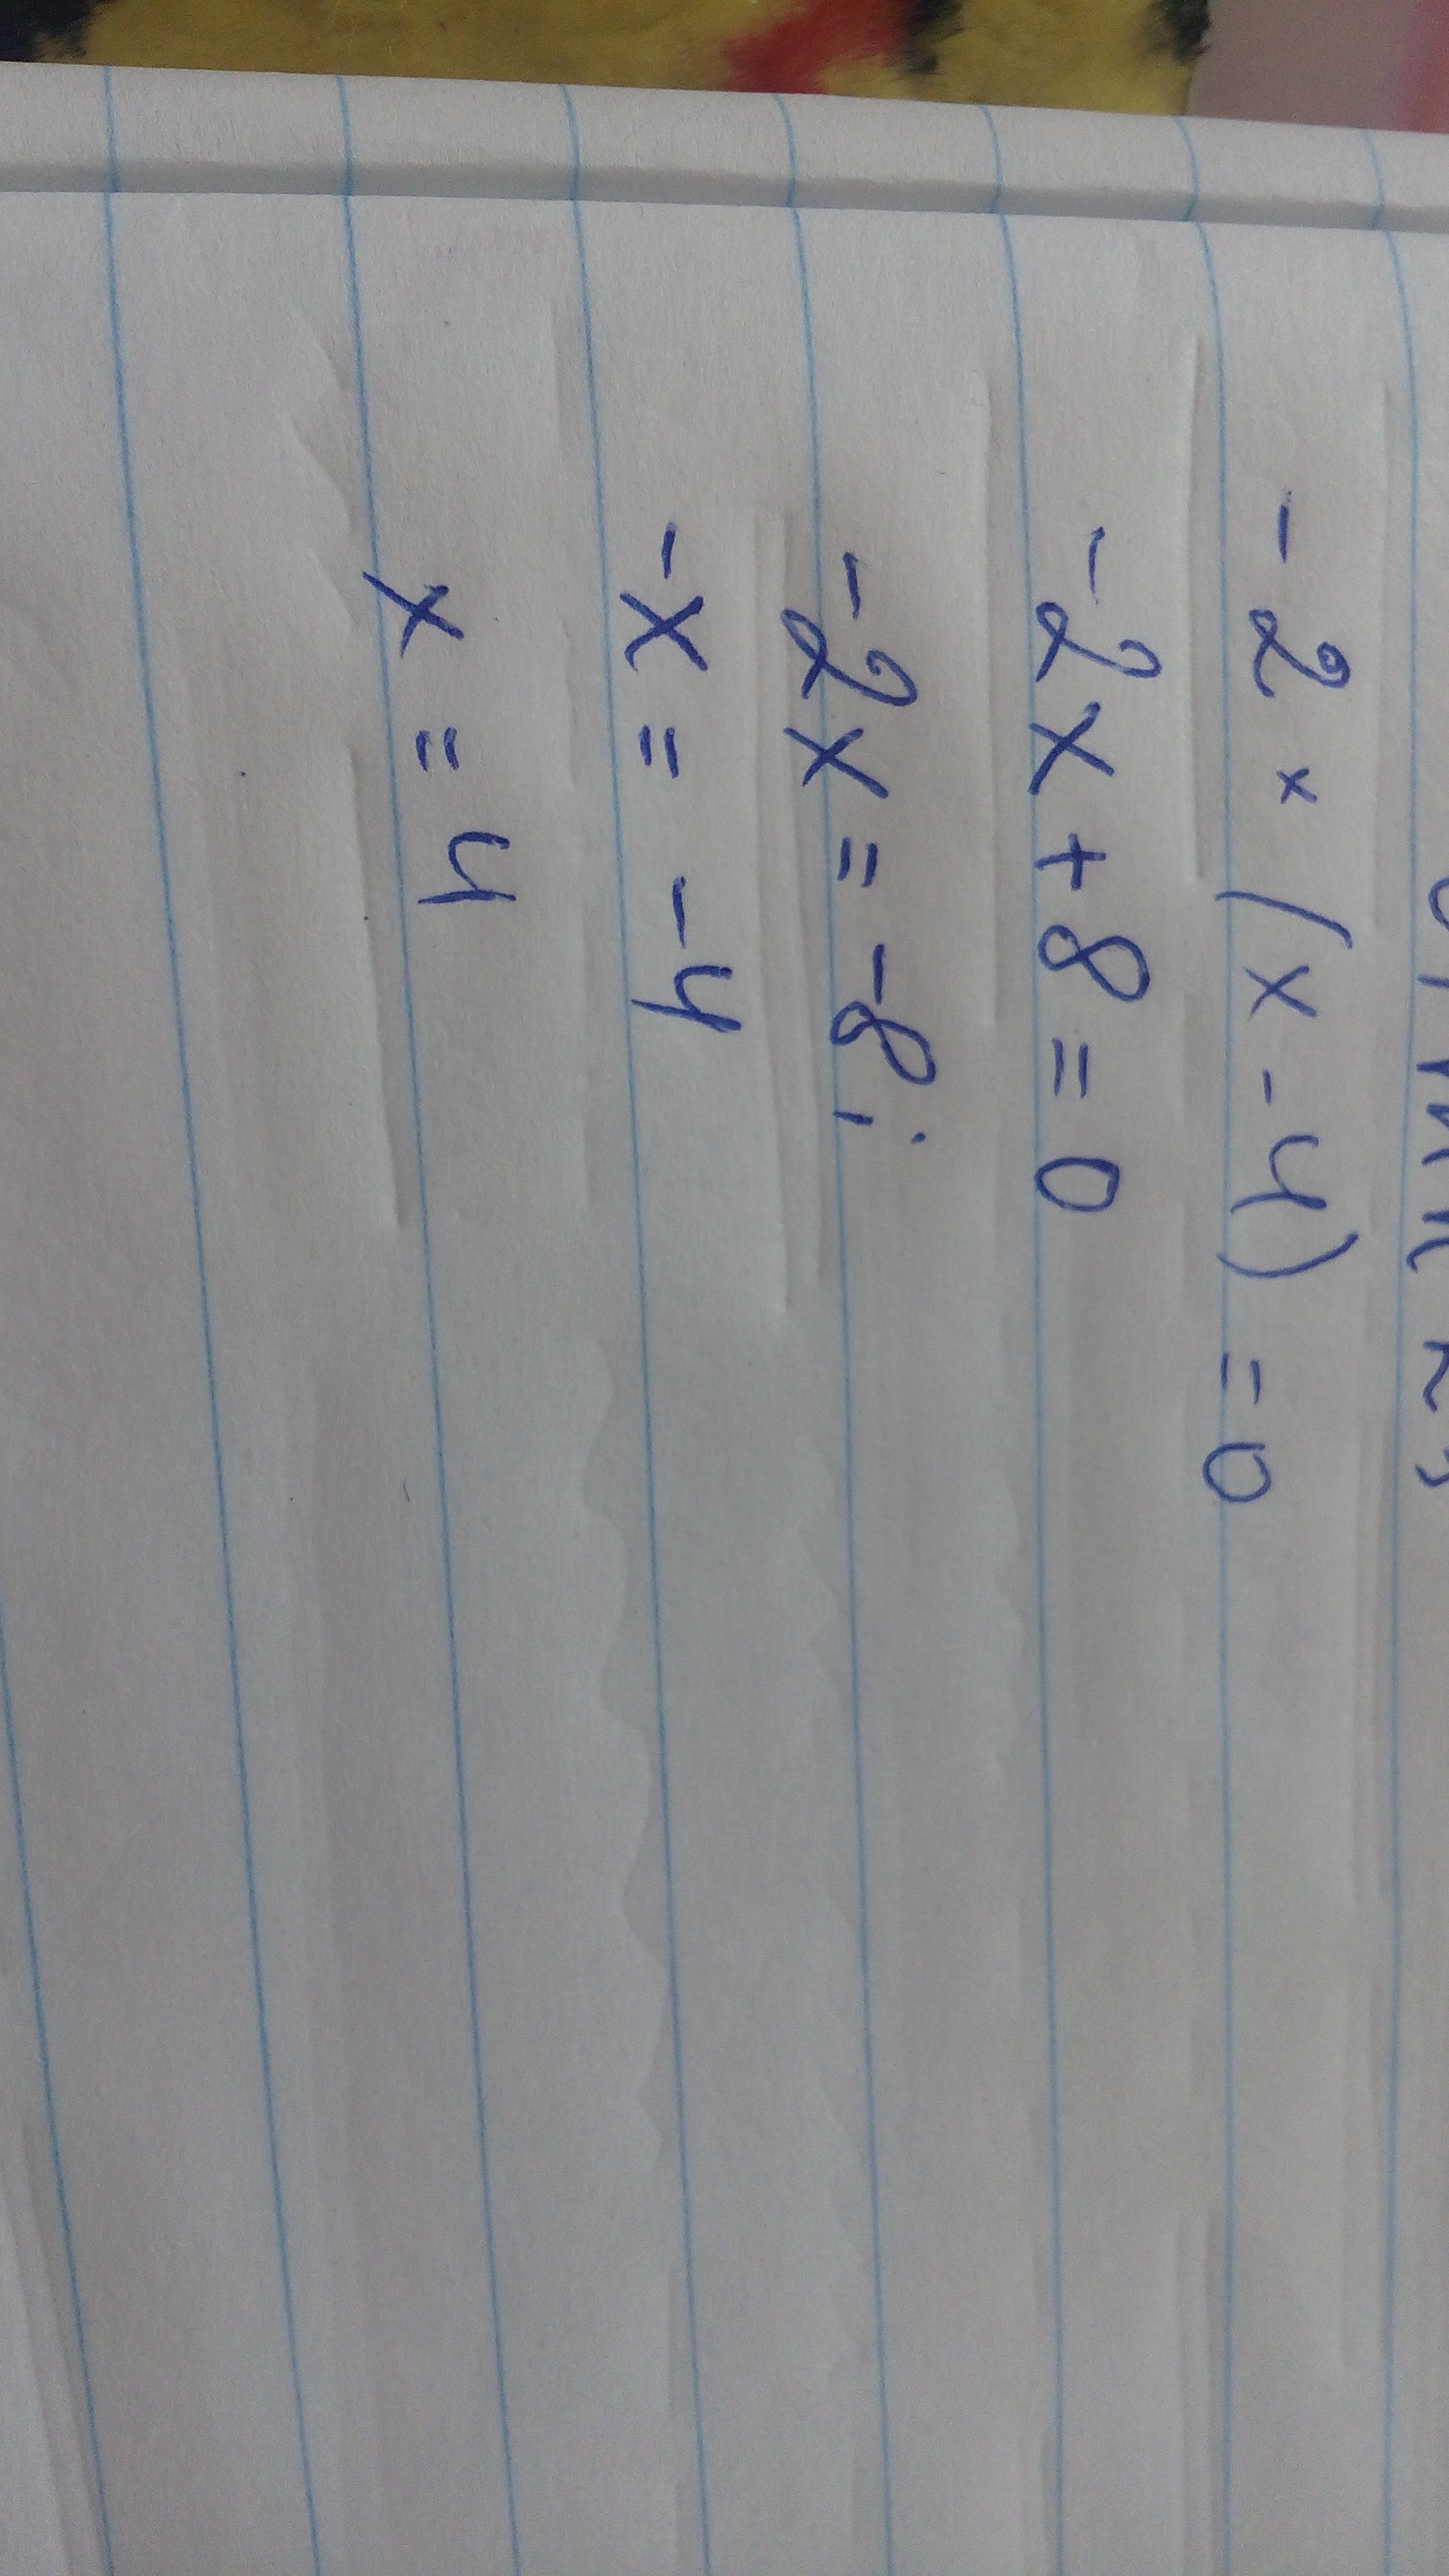 - 2 × (x - 4) = 0
-2x + 8 = 0
-2x = -8;
-x = -4
x = 4